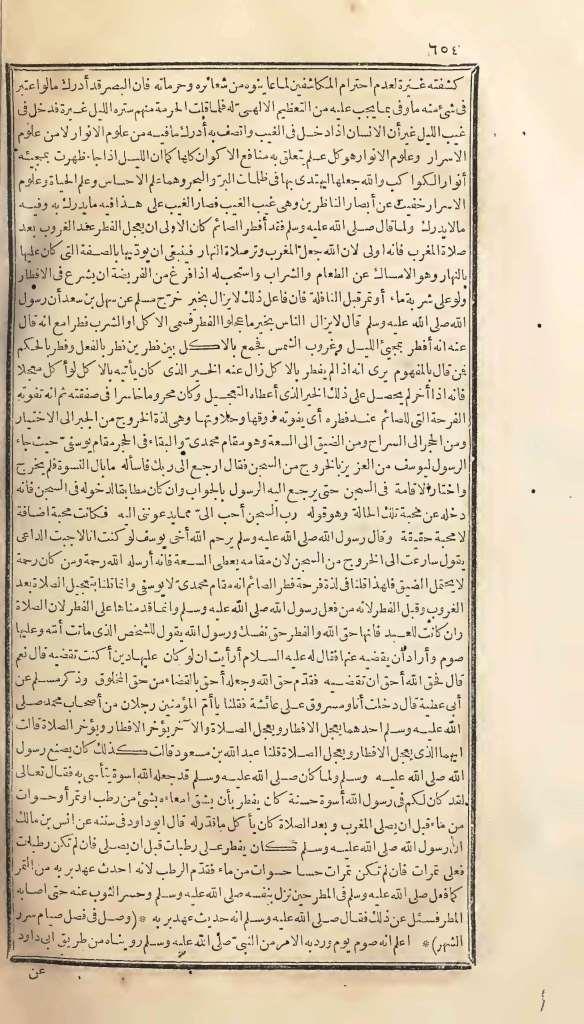 ٦٥٤
كشفته غيرة لعدم احترام المكاشفين لما عاينوه من شعائره وحرماته فان البصر قد أدرك مالو اعتبر
فى شئ منه ما وفى بما يجب عليه من التعظيم الالهىّ له فلما قلت الحرمة منهم ستره الليل غيرة فدخل فى
غيب الليل غير أن الانسان اذا دخل فى الغيب واتصف به أدرك ما فيه من علوم الانوار لا من علوم
الاسرار وعلوم الانوار هو كل علم يتعلق به منافع الاكوان كلها كما ان الليل اذا جاء ظهرت بمجيئه
أنوار الكواكب والله جعلها ليهتدى بها فى ظلمات البرّ والبحر وهما علم الاحساس وعلم الحياة وعلوم
الاسرار خفيت عن أبصار الناظرين وهى غيب الغيب فصار الغيب على هذا فيه ما يدرك به وفيه
مالا يدرك ولما قال صلى الله عليه وسلم فقد أفطر الصائم كان الاولى ان يعجل الفطر عند الغروب بعد
صلاة المغرب فانه اولى لان الله جعل المغرب وتر صلاة النهار فينبغى ان يؤدّيها بالصفة التى كان عليها
بالنهار وهو الامساك عن الطعام والشراب واستحب له اذا فرغ من الفريضة ان يشرع فى الافطار
ولو على شربة ماء أو تمر قبل النافلة فان فاعل ذلك لا يزال بخير خرّج مسلم عن سهل بن سعد أن رسول
الله صلى الله عليه وسلم قال لا يزال الناس بخير ما عجلوا الفطر فسمى الاكل او الشرب فطرا مع انه قال
عنه انه أفطر بمجئ الليل وغروب الشمس فجمع بالاكل بين فطرين فطر بالفعل وفطر بالحكم
فمن قال بالمفهوم يرى انه اذا لم يفطر بالاكل زال عنه الخير الذى كان يأتيه بالاكل لو أكل معجلا
فانه اذا أخر لم يحصل على ذلك الخير الذى أعطاه التعجيل وكان محروما خاسرا فى صفقته ثم انه تفوته
الفرحة التى للصائم عند فطره أى يفوته ذوقها وحلاوتها وهى لذة الخروج من الجبر الى الاختيار
ومن الحجر الى السراح ومن الضيق الى السعة وهو مقام محمدىّ والبقاء فى الحجر مقام يوسفىّ حيث جاء
الرسول ليوسف من العزيز بالخروج من السجن فقال ارجع الى ربك فاسأله ما بال النسوة فلم يخرج
واختار الاقامة فى السجن حتى يرجع اليه الرسول بالجواب وان كان مطابقا لدخوله فى السجن فانه
دخله عن محبة تلك الحالة وهو قوله رب السجن أحب الىّ مما يدعوننى اليه فكانت محبة اضافة
لا محبة حقيقة وقال رسول الله صلى الله عليه وسلم يرحم الله أخى يوسف لو كنت انا لاجبت الداعى
يقول سارعت الى الخروج من السجن لان مقامه يعطى السعة فانه أرسله الله رحمة ومن كان رحمة
لا يحتمل الضيق فلهذا قلنا فى لذة فرحة فطر الصائم انه مقام محمدىّ لا يوسفى وانما قلنا بتعجيل الصلاة بعد
الغروب وقبل الفطر لانه من فعل رسول الله صلى الله عليه وسلم وانما قدمناها على الفطر لان الصلاة
وان كانت للعبد فانها حق الله والفطر حق نفسك ورسول الله يقول للشخص الذى ماتت أمّه وعليها
صوم وأراد أن يقضيه عنها فقال له عليه السلام أرأيت ان لو كان عليها دين أكنت تقضيه قال نعم
قال فحق الله أحق ان تقضيه فقدّم حق الله وجعله أحق بالقضاء من حق المخلوق وذكر مسلم عن
أبى عطية قال دخلت أنا ومسروق على عائشة فقلنا يا أمّ المؤمنين رجلان من أصحاب محمد صلى
الله عليه وسلم احدهما يعجل الافطار ويعجل الصلاة والآخر يؤخر الافطار ويؤخر الصلاة قالت
ايهما الذى يعجل الافطار ويعجل الصلاة قلنا عبد الله بن مسعود قالت كذلك كان يصنع رسول
الله صلى الله عليه وسلم ولما كان صلى الله عليه وسلم قد جعله الله اسوة يتأسى به فقال تعالى
لقد كان لكم فى رسول الله أسوة حسنة كان يفطر بأن يشق امعاءه بشئ من رطب او تمر أو حسوات
من ماء قبل ان يصلى المغرب وبعد الصلاة كان يأكل ما قدر له قال ابو داود فى سننه عن انس بن مالك
ان رسول الله صلى الله عليه وسلم كان يفطر على رطبات قبل ان يصلى فان لم تكن رطبات
فعلى تمرات فان لم تكن تمرات حسا حسوات من ماء فقدّم الرطب لانه احدث عهد بربه من التمر
كما فعل صلى الله عليه وسلم فى المطر حين نزل بنفسه صلى الله عليه وسلم وحسر الثوب عنه حتى اصابه
المطر فسئل عن ذلك فقال صلى الله عليه وسلم انه حديث عهد بربه * (وصل فى فصل صيام سرر
الشهر) * اعلم انه صوم يوم ورد به الامر من النبىّ صلى الله عليه وسلم رويناه من طريق أبى داود
عن